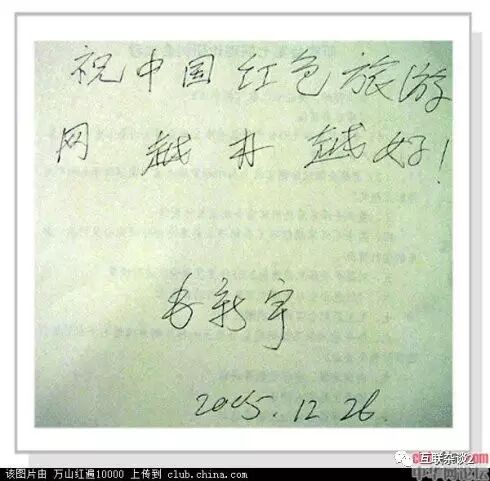 祝中国红色旅游
网越办越好！
毛新宇
2005.12.26
该图片由 万山红遍10000 上传到 club.china.com
互联杂谈2